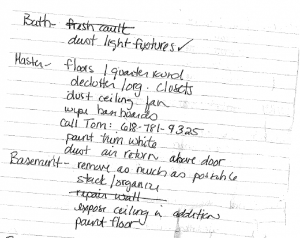 Bath - fresh caulk
dust light fixtures ✓
Master - floors / quarter round
declutter / org. closets
dust ceiling fan
wipe baseboards
Call Tom: 618-781-9325
paint trim white
dust air return above door
Basement - remove as much as possible
stack / organize
repair wall
expose ceiling in addition
paint floor